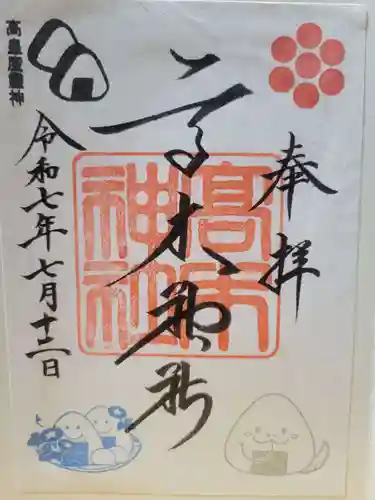 奉拝
高木神社
高木神社
令和七年七月十二日
高皇産霊神